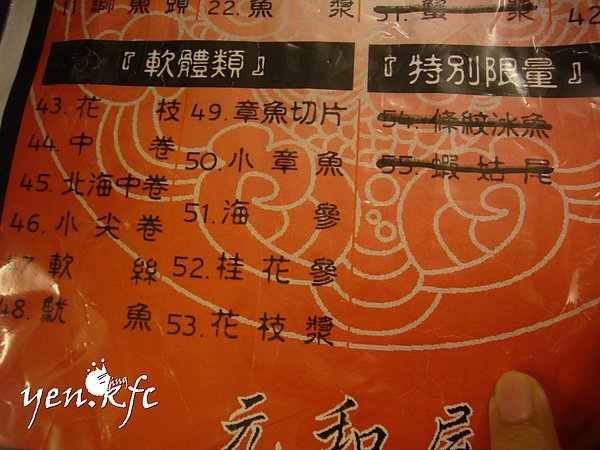 11. 鯽魚頭
22. 魚漿
31. 蟹漿
42
『軟體類』
43. 花枝
44. 中卷
45. 北海中卷
46. 小尖卷
47. 軟絲
48. 魷魚
49. 章魚切片
50. 小章魚
51. 海參
52. 桂花參
53. 花枝漿
『特別限量』
54. 條紋冰魚
55. 蝦姑尾
元和屋
yen.kfc